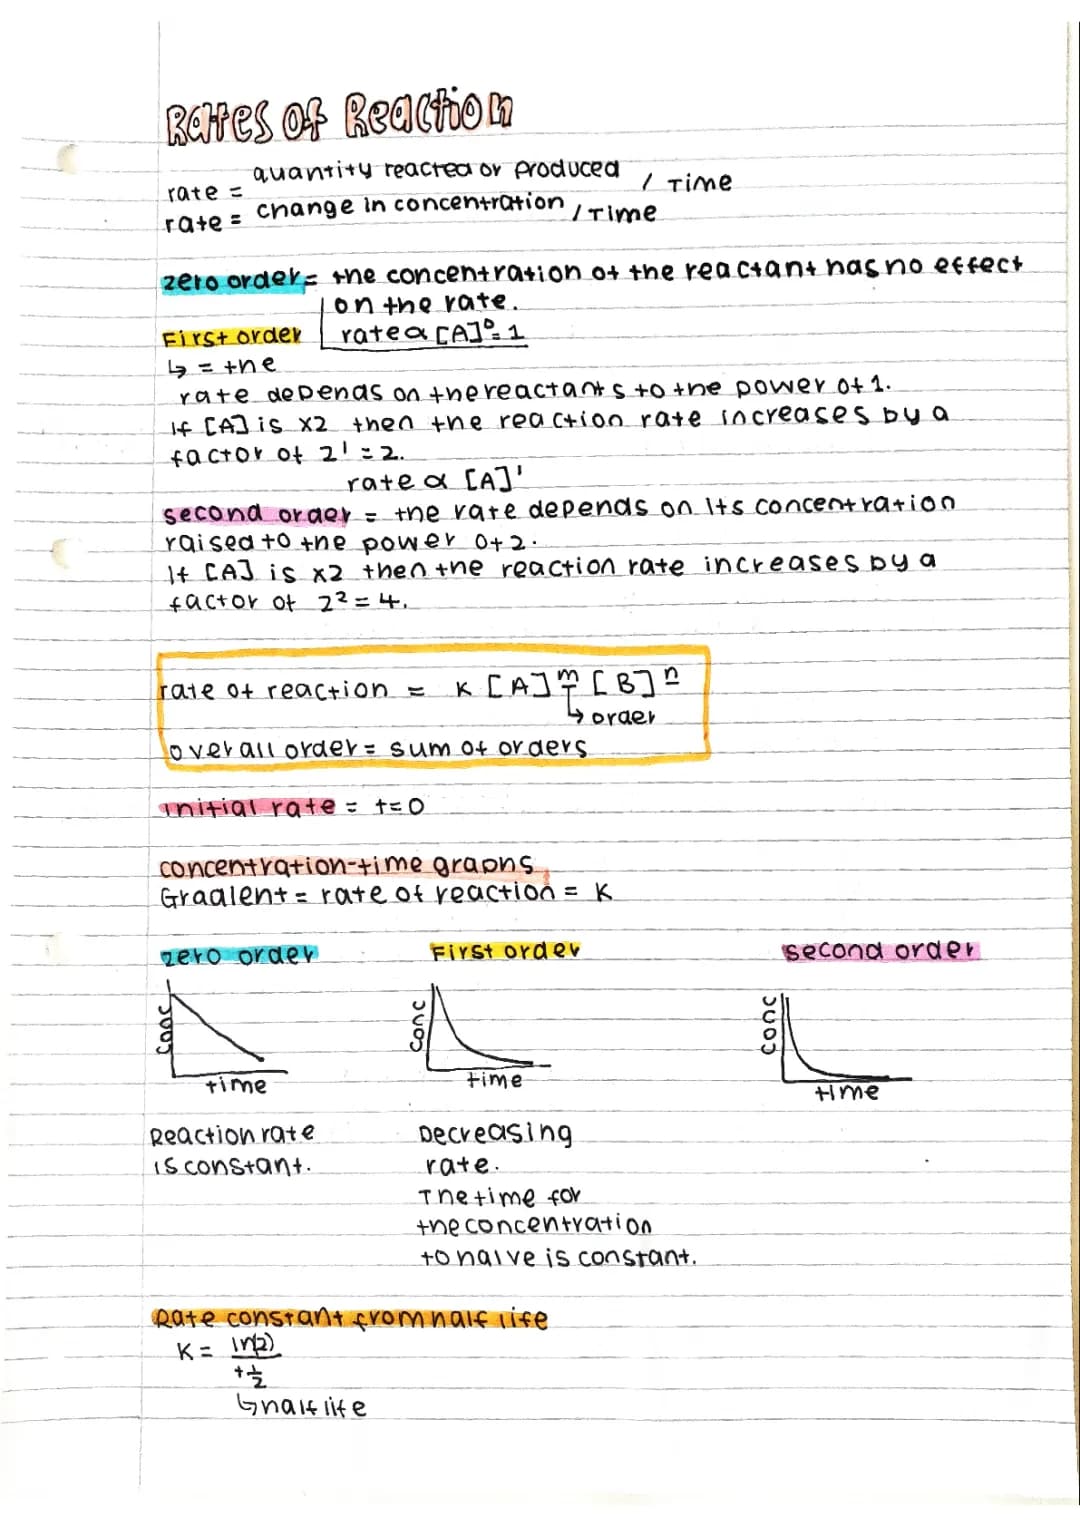 Rates of Reaction
rate = quantity reacted or produced / Time
rate = change in concentration / Time
zero order = the concentration of the reactant has no effect
on the rate.
rate α [A]⁰ = 1
First order
↳ = the
rate depends on the reactants to the power of 1.
If [A] is x2 then the reaction rate increases by a
factor of 2¹ = 2.
rate α [A]¹
second order = the rate depends on its concentration
raised to the power of 2.
If [A] is x2 then the reaction rate increases by a
factor of 2² = 4.
rate of reaction = K [A]ᵐ [B]ⁿ
↳ order
overall order = sum of orders
initial rate = t=0
concentration-time graphs
Gradient = rate of reaction = K
zero order First order second order
conc conc conc
time time time
Reaction rate
is constant.
Decreasing
rate.
The time for
the concentration
to halve is constant.
Rate constant from half life
K = ln(2)
t½
↳ half life